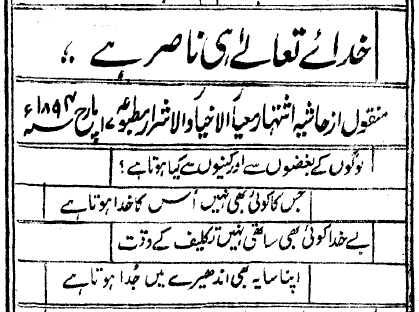 خدائے تعالےٰ ہی ناصر ہے
منقول از حاشیہ اشتہار معیار الاخیار والاشرار مطبوعہ ۱۷ مارچ ۱۸۹۴ء
لوگوں کے بغضوں سے اور کینوں سے کیا ہوتا ہے؟
جس کا کوئی بھی نہیں اُس کا خدا ہوتا ہے
بے خدا کوئی بھی ساتھی نہیں تکلیف کے وقت
اپنا سایہ بھی اندھیرے میں جُدا ہوتا ہے